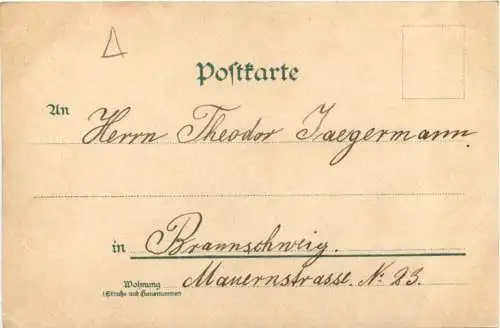 Postkarte
An Herrn Theodor Jaegermann.
in Braunschweig.
Wohnung Mauernstrasse. No 23.
(Straße und Hausnummer)